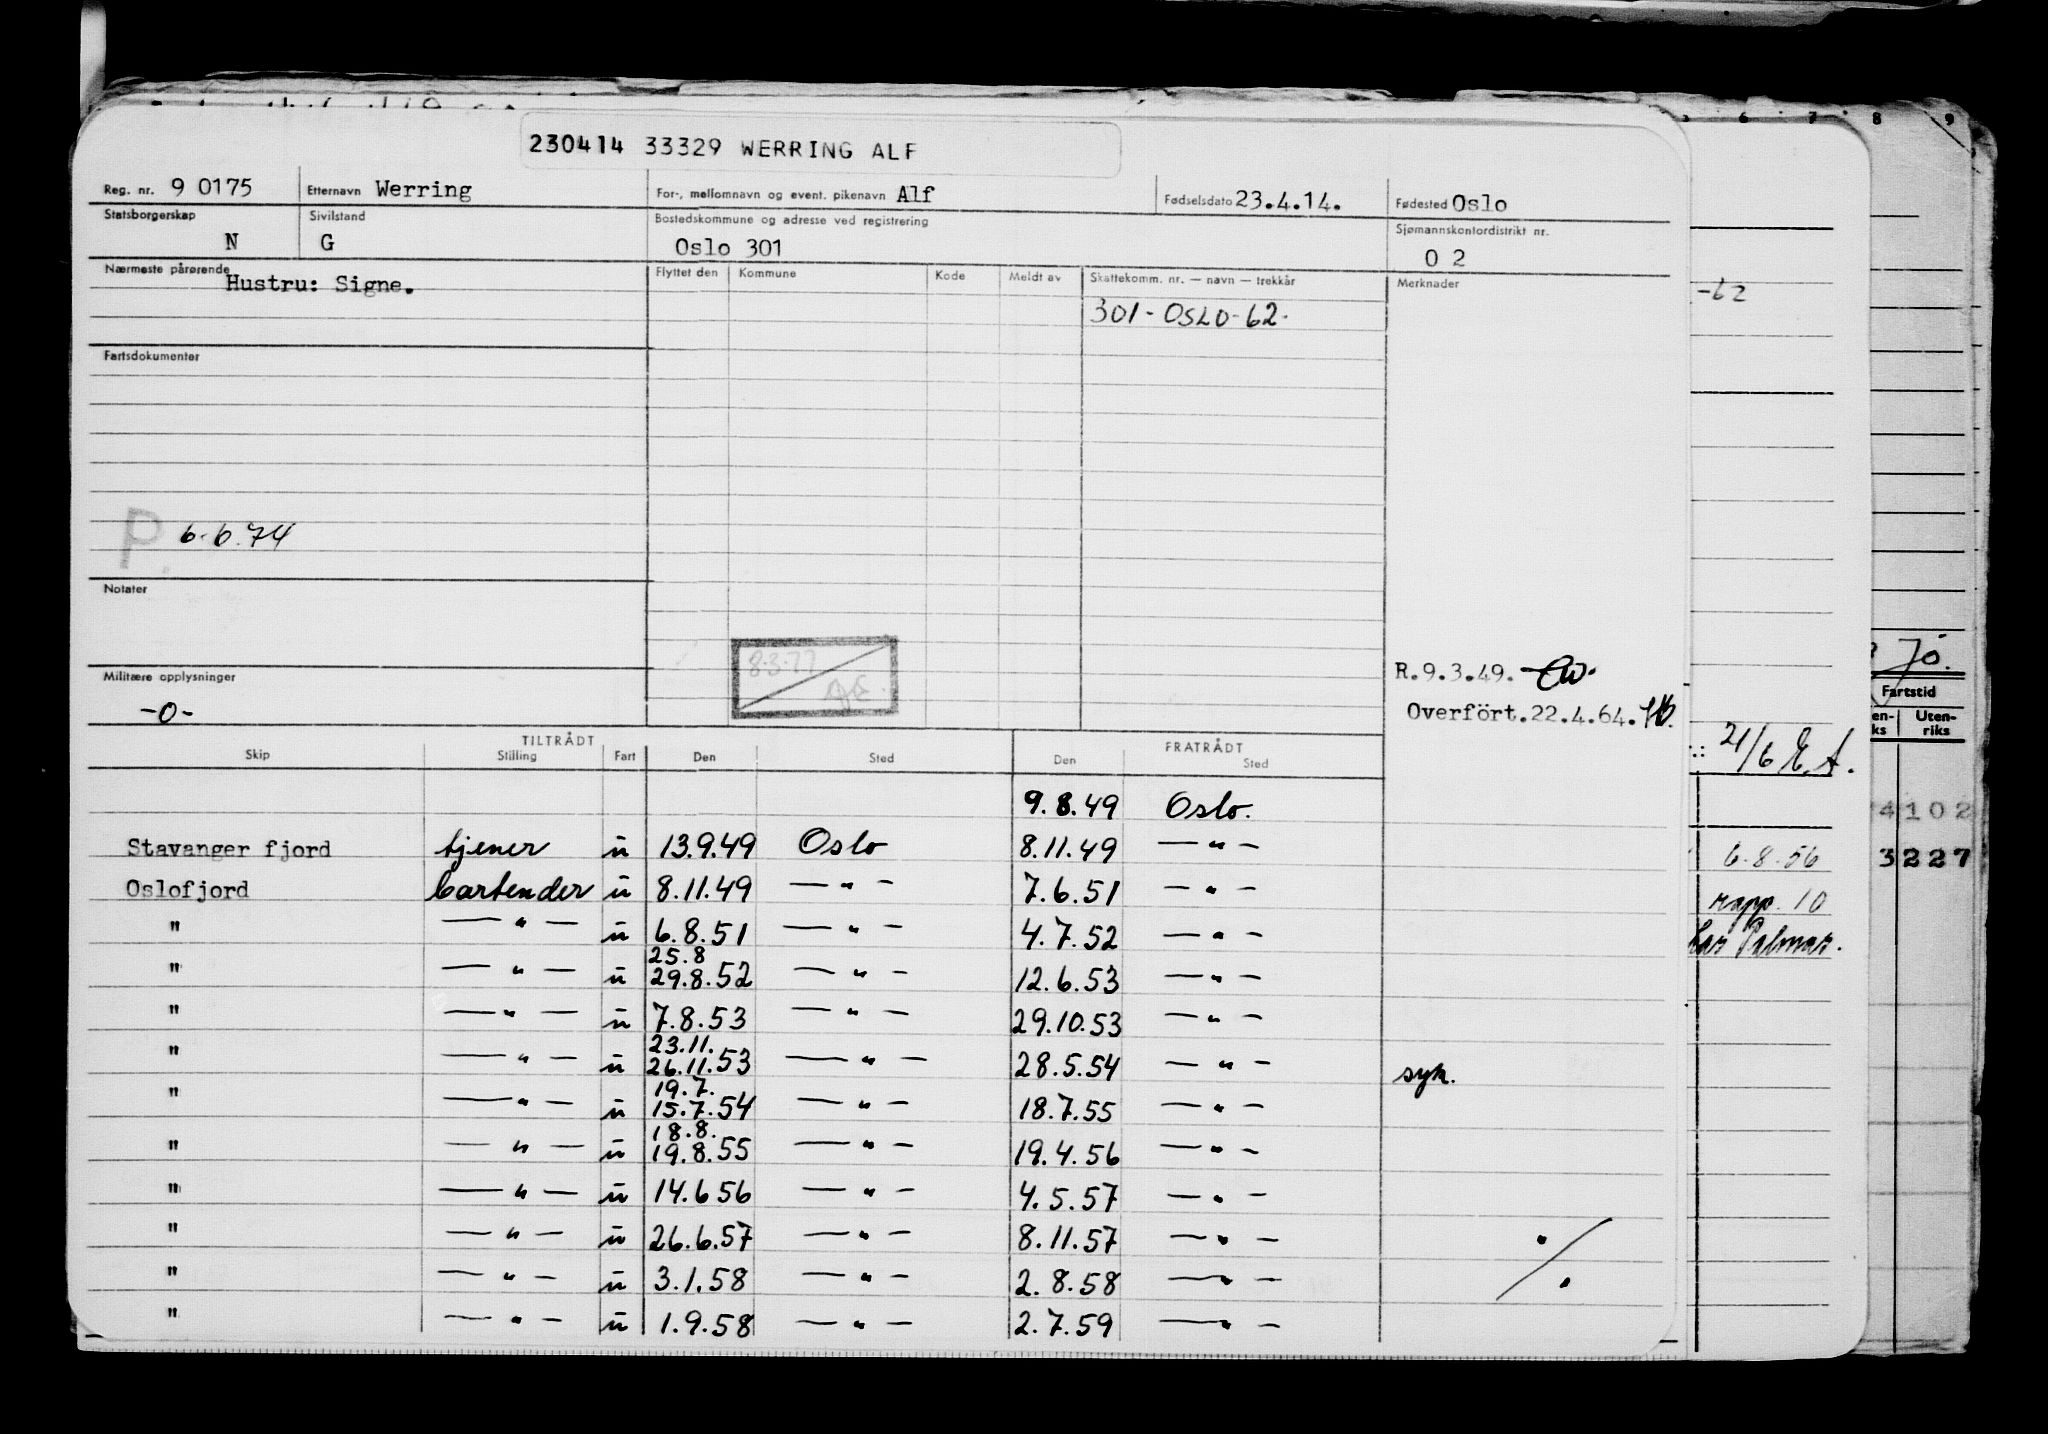 230414 33329 WERRING ALF
Reg. nr. 9 0175 Etternavn Werring For-, mellomnavn og event. pikenavn Alf Fødselsdato 23.4.14. Fødested Oslo
Statsborgerskap N Sivilstand G Bostedskommune og adresse ved registrering Oslo 301 Sjømannskontordistrikt nr. 0 2
Nærmeste pårørende Hustru: Signe. Flyttet den Kommune Kode Meldt av Skattekomm. nr. — navn — trekkår Merknader
301 - OSLO - 62.
-62
Fartsdokumenter
P 6.6.74
Notater
8.3.77
Militære opplysninger
-0-
R.9.3.49.
Overfört.22.4.64.
Jo.
Fartstid
Uten-
riks
21/6 E.A.
TILTRÅDT FRATRÅDT
Skip Stilling Fart Den Sted Den Sted
9.8.49 Oslo.
Stavanger fjord tjener u 13.9.49 Oslo 8.11.49 — " —
Oslofjord bartender u 8.11.49 — " — 7.6.51 — " —
" — " — u 6.8.51 — " — 4.7.52 — " —
25.8
" — " — u 29.8.52 — " — 12.6.53 — " —
" — " — u 7.8.53 — " — 29.10.53 — " —
23.11.
" — " — u 26.11.53 — " — 28.5.54 — " — syk.
19.7.
" — " — u 15.7.54 — " — 18.7.55 — " —
18.8.
" — " — u 19.8.55 — " — 19.4.56 — " —
" — " — u 14.6 56 — " — 4.5.57 — " —
" — " — u 26.6.57 — " — 8.11.57 — " —
" — " — u 3.1.58 — " — 2.8.58 — " —
" — " — u 1.9.58 — " — 2.7.59 — " —
6 7 8 9
4102
6.8.56 3227
rapp. 10
har Palmar.